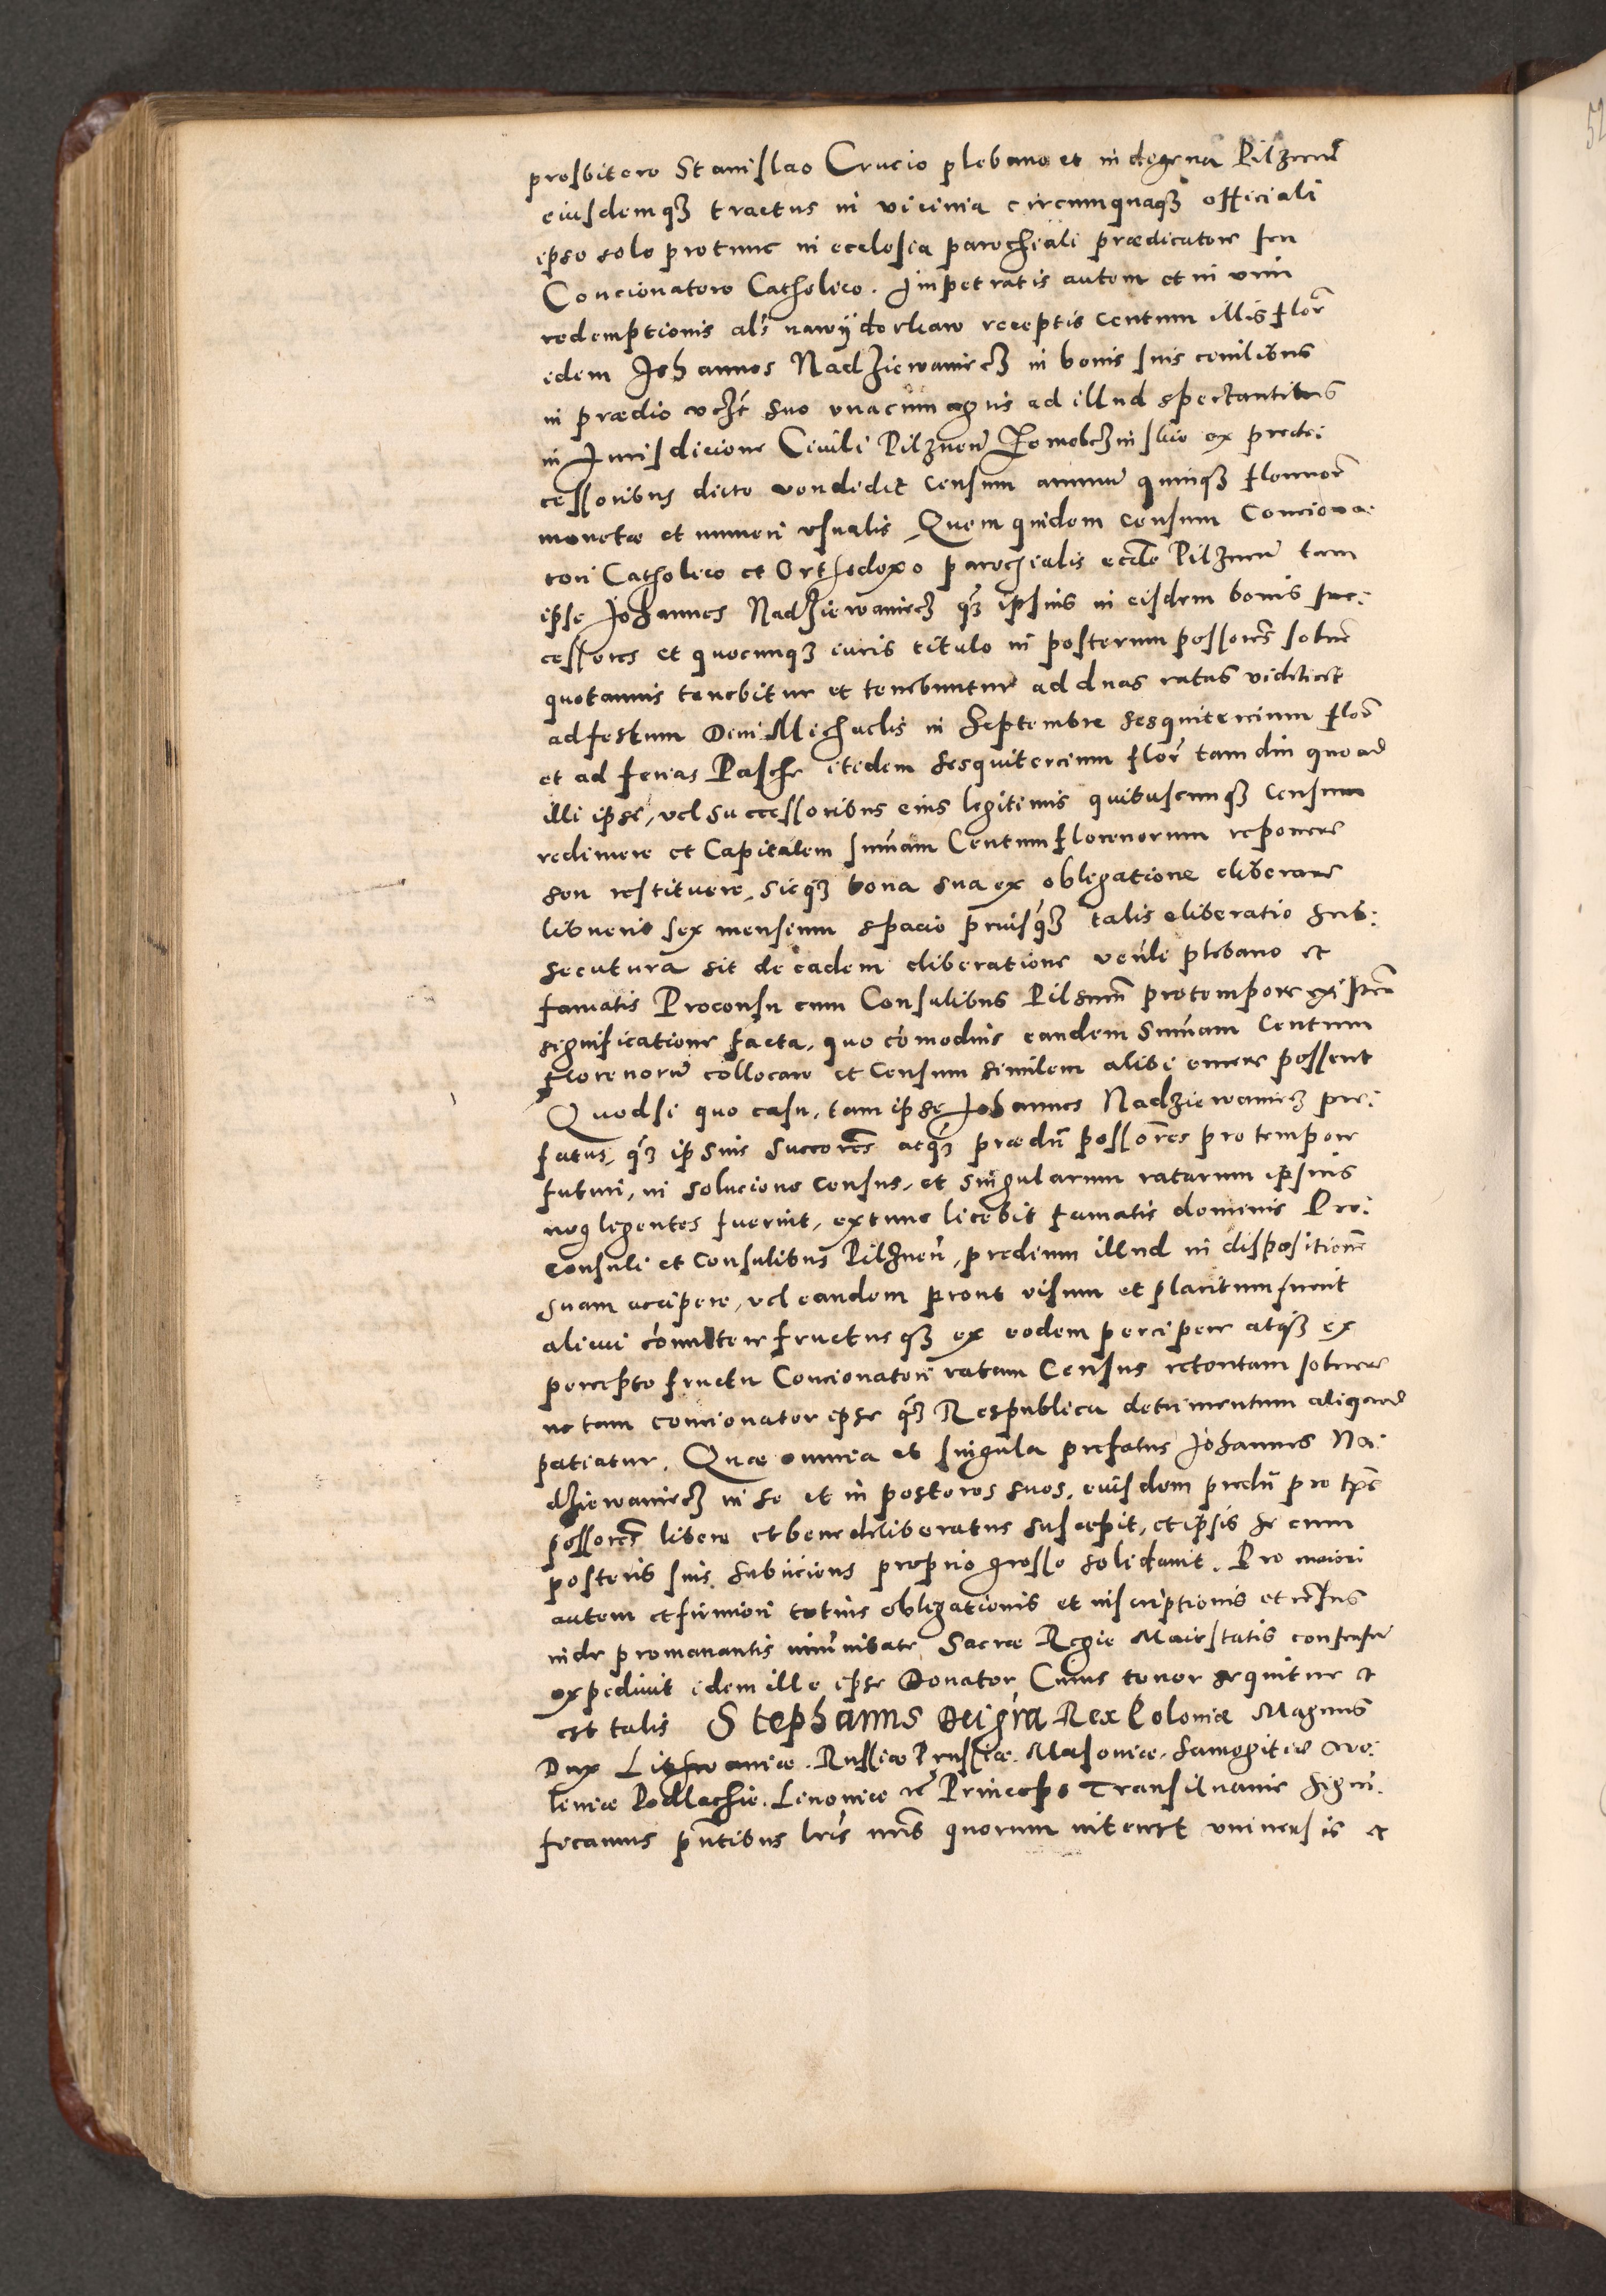 presbitero Stanislao Crucio plebano et in degena Pilznen
eiusdemqz tractus in vicinia circumquaqz officiali
ipso solo protunc in ecclesia parochiali prædicatore seu
Concionatore Catholico. Impetratis autem et in vim
redemptionis als nawÿderkaw receptis Centum illis flor
idem Johannes Nadziewaniecz in bonis suis ciuilibus
in prædio vczt suo vnacum agris ad illud spectantibus
in Jurisdicione Ciuili Pilznen ex prede:
cessoribus dicto vendedit Censum annuu quinqz florenor
monetæ et numeri vsualis, Quem quidem Censum Conciona:
tori Catholico et Orthodoxo parochialis eccle Pilznen tam
ipse Johannes Nadziewaniecz qz ipsius in eisdem bonis suc:
cessores et quocunqz iuris titulo in posterum possores soluere
quotannis tenebitur et tenebuntur ad duas ratas videlicet
ad festum Diui Michaelis in Septembre sesquitercium flor
et ad ferias Pasche itidem sesquitercium flor tam diu quoad
illi ipsi, vel successoribus eius legitimis quibuscunqz Censum
redimere et Capitalem summam Centum florenorum reponere
seu restituere, sicqz bona sua ex obligatione eliberare
libuerit sex mensium spacio priusqz talis eliberatio sub:
secutura sit de eadem eliberatione venle plebano et
famatis Proconsu cum Consulibus Pilsnen protempore existen
significatione facta, quo comodius eandem Summam Centum
florenoru collocare et Censum similem alibi emere possent
Quodsi quo casu, tam ipse Johannes Nadziewaniecz pre:
fatus, qz ipsius succores atqz prædii possores pro tempore
futuri, in solucione Census, et singularum ratarum ipsius
neglegentes fuerint, extunc licebit famatis dominis Pro:
consuli et Consulibus Pilznen, predium illud in dispositione
suam accipere, vel eandem prout visum et placitum fuerit
alicui comittere fructusqz ex eodem percipere atqz ex
percepto fructu Concionatori ratam Census retentam soluere
ne tam concionator ipse qz Respublica detrimentum aliquod
patiatur. Quæ omnia et singula prefatus Johannes Na:
dziewaniecz in se et in posteros suos, euisdem predii pro tpe
possores libere et bene deliberatus suscepit, et ipsis se cum
posteris suis subiiciens proprio grosso solidauit. Pro maiori
autem et firmiori totius obligationis et inscriptionis et census
inde promanantis Sacræ Regie Maiestatis consensu
expediuit idem ille ipse Donator Cuius tenor sequitur et
est talis Stephanus Dei gra Rex Poloniæ Magnus
Dux Lithwaniæ. Russiæ Prussiæ. Masoviæ. Samogitiæ Wo:
liniæ Podlachie. Liuoniæ etc Princeps Transiluanie Signi:
ficamus pntibus lris nris quorum interest vniuersis et